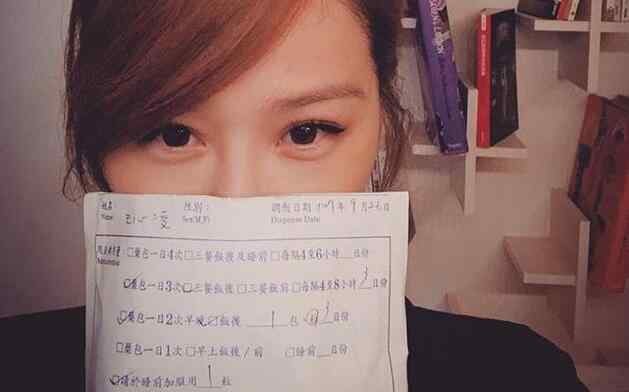 姓名 性別： 調劑日期 107年9月26日
Name Sex(M,F) Dispense Date
□藥包一日4次□三餐飯後及睡前□每隔4至6小時__日份
☑藥包一日3次□三餐飯後□三餐飯前□每隔4至8小時3日份
☑藥包一日2次早晚☑飯後 1 包 3日份
□藥包一日1次□早上飯後/前 □睡前__日份
☑請於睡前加服用 1 粒